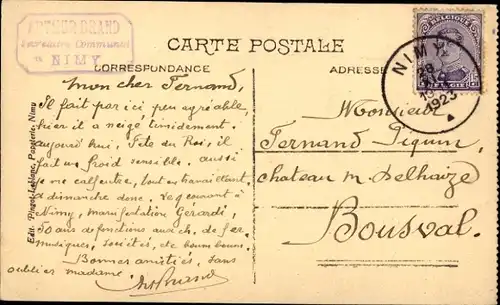 ARTHUR BRAND
Secrétaire Communal
NIMY
CARTE POSTALE
CORRESPONDANCE
ADRESSE
BELGIQUE
NIMY
1923
Mon cher Fernand,
Il fait par ici, peu agréable,
hier il a neigé timidement.
aujourd'hui, Fête du Roi, il
fait un froid sensible. aussi
je me calfeutre, tout en travaillant.
à dimanche donc.
Nimy, manifestation Gérard,
50 ans de fonctions aux ch. de fer.
musiques, sociétés, etc boum boum.
Bonnes amitiés, sans
oublier madame
Monsieur
Fernand Piquin,
chateau m. Delhaize
Bousval.
Edit. Pinget-Leblanc, Papeterie, Nimy